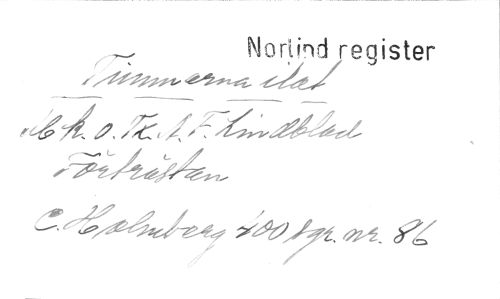 Norlind register
Timmarna slat
Ck. o. Tx. A. F. Lindblad
Förtröstan
C. Holmberg 400 sgr. nr. 86